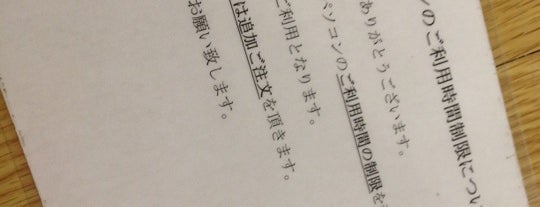 ンのご利用時間制限につい
ありがとうございます。
パソコンのご利用時間の制限を
ご利用となります。
は追加ご注文を頂きます。
お願い致します。